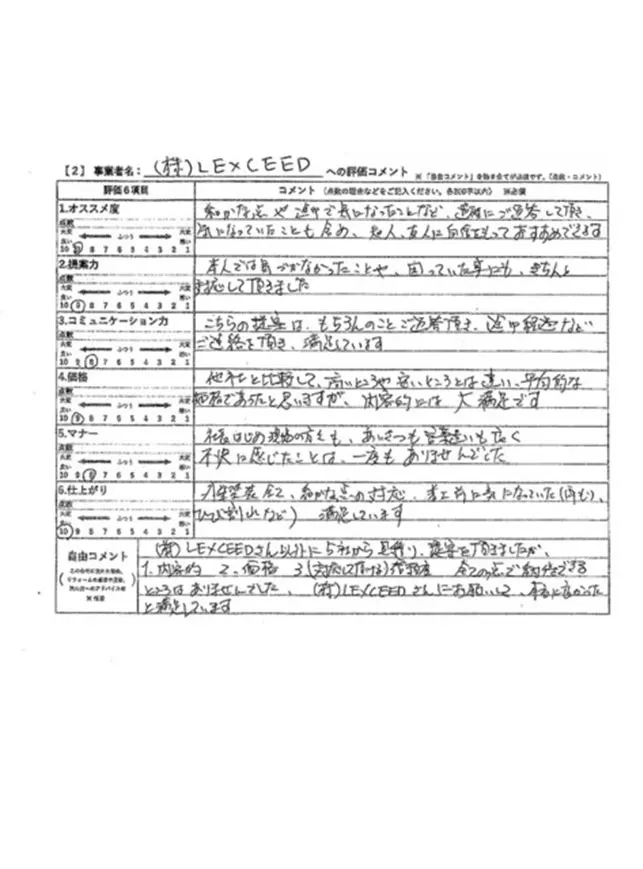 【2】事業者名: (株)LEXCEED への評価コメント ※「自由コメント」を除き全てが必須です。(点数・コメント)
評価6項目 コメント (点数の理由などをご記入ください。各200字以内) ※必須
1.オススメ度
細かな点や途中で気になったことなど、適切にご返答して頂き、
気になっていたことも含め、知人、友人に自信をもっておすすめできます
点数
大変 ふつう 大変
10 9 8 7 6 5 4 3 2 1
2.提案力
本人では気づかなかったことや、困っていた事にも、きちんと
対応して頂きました
点数
大変 ふつう 大変
良い 悪い
10 9 8 7 6 5 4 3 2 1
3.コミュニケーション力
こちらの提案は、もちろんのことご返答頂き、途中経過など
ご連絡を頂き、満足しています
点数
大変 ふつう 大変
良い 悪い
10 9 8 7 6 5 4 3 2 1
4.価格
他社と比較して、高いところや安いところとは違い、平均的な
価格であったと思いますが、内容的には大満足です
点数
大変 ふつう 大変
良い 悪い
10 9 8 7 6 5 4 3 2 1
5.マナー
社長はじめ現場の方々も、あいさつも言葉遣いも良く
不快に感じたことは、一度もありませんでした
点数
大変 ふつう 大変
良い 悪い
10 9 8 7 6 5 4 3 2 1
6.仕上がり
外壁塗装全て、細かな点への対応、着工前に気になっていた(雨もり、
ひび割れなど) 満足しています
点数
大変 ふつう 大変
良い 悪い
10 9 8 7 6 5 4 3 2 1
自由コメント
(株)LEXCEEDさん以外に5社から見積り、提案を頂きましたが、
1.内容的 2.価格 3.(対応して頂ける)満足度 全ての点で納得できる
ところはありませんでした、(株)LEXCEEDさんにお願いして、本当に良かった
と満足しています